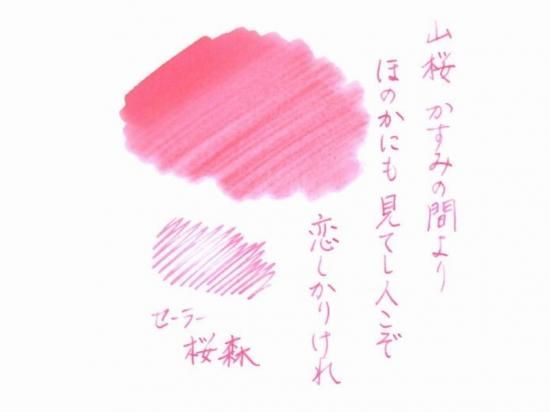 山桜 かすみの間より
ほのかにも見てし人こぞ
恋しかりけれ
セーラー
桜森